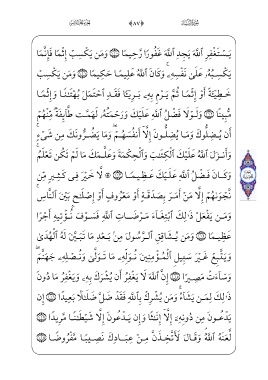 يَسْتَغْفِرِ ٱللَّهَ يَجِدِ ٱللَّهَ غَفُورًا رَّحِيمًا ١١٠ وَمَن يَكْسِبْ إِثْمًا فَإِنَّمَا
يَكْسِبُهُۥ عَلَىٰ نَفْسِهِۦ وَكَانَ ٱللَّهُ عَلِيمًا حَكِيمًا ١١١ وَمَن يَكْسِبْ
خَطِيٓـَٔةً أَوْ إِثْمًا ثُمَّ يَرْمِ بِهِۦ بَرِيٓـًٔا فَقَدِ ٱحْتَمَلَ بُهْتَـٰنًا وَإِثْمًا
مُّبِينًا ١١٢ وَلَوْلَا فَضْلُ ٱللَّهِ عَلَيْكَ وَرَحْمَتُهُۥ لَهَمَّت طَّآئِفَةٌ مِّنْهُمْ
أَن يُضِلُّوكَ وَمَا يُضِلُّونَ إِلَّآ أَنفُسَهُمْ وَمَا يَضُرُّونَكَ مِن شَىْءٍ
وَأَنزَلَ ٱللَّهُ عَلَيْكَ ٱلْكِتَـٰبَ وَٱلْحِكْمَةَ وَعَلَّمَكَ مَا لَمْ تَكُن تَعْلَمُ
وَكَانَ فَضْلُ ٱللَّهِ عَلَيْكَ عَظِيمًا ١١٣ ۞ لَّا خَيْرَ فِى كَثِيرٍ مِّن
نَّجْوَىٰهُمْ إِلَّا مَنْ أَمَرَ بِصَدَقَةٍ أَوْ مَعْرُوفٍ أَوْ إِصْلَـٰحٍۭ بَيْنَ ٱلنَّاسِ
وَمَن يَفْعَلْ ذَٰلِكَ ٱبْتِغَآءَ مَرْضَاتِ ٱللَّهِ فَسَوْفَ نُؤْتِيهِ أَجْرًا
عَظِيمًا ١١٤ وَمَن يُشَاقِقِ ٱلرَّسُولَ مِنۢ بَعْدِ مَا تَبَيَّنَ لَهُ ٱلْهُدَىٰ
وَيَتَّبِعْ غَيْرَ سَبِيلِ ٱلْمُؤْمِنِينَ نُوَلِّهِۦ مَا تَوَلَّىٰ وَنُصْلِهِۦ جَهَنَّمَ
وَسَآءَتْ مَصِيرًا ١١٥ إِنَّ ٱللَّهَ لَا يَغْفِرُ أَن يُشْرَكَ بِهِۦ وَيَغْفِرُ مَا دُونَ
ذَٰلِكَ لِمَن يَشَآءُ وَمَن يُشْرِكْ بِٱللَّهِ فَقَدْ ضَلَّ ضَلَـٰلًۢا بَعِيدًا ١١٦ إِن
يَدْعُونَ مِن دُونِهِۦٓ إِلَّآ إِنَـٰثًا وَإِن يَدْعُونَ إِلَّا شَيْطَـٰنًا مَّرِيدًا ١١٧
لَّعَنَهُ ٱللَّهُ وَقَالَ لَأَتَّخِذَنَّ مِنْ عِبَادِكَ نَصِيبًا مَّفْرُوضًا ١١٨